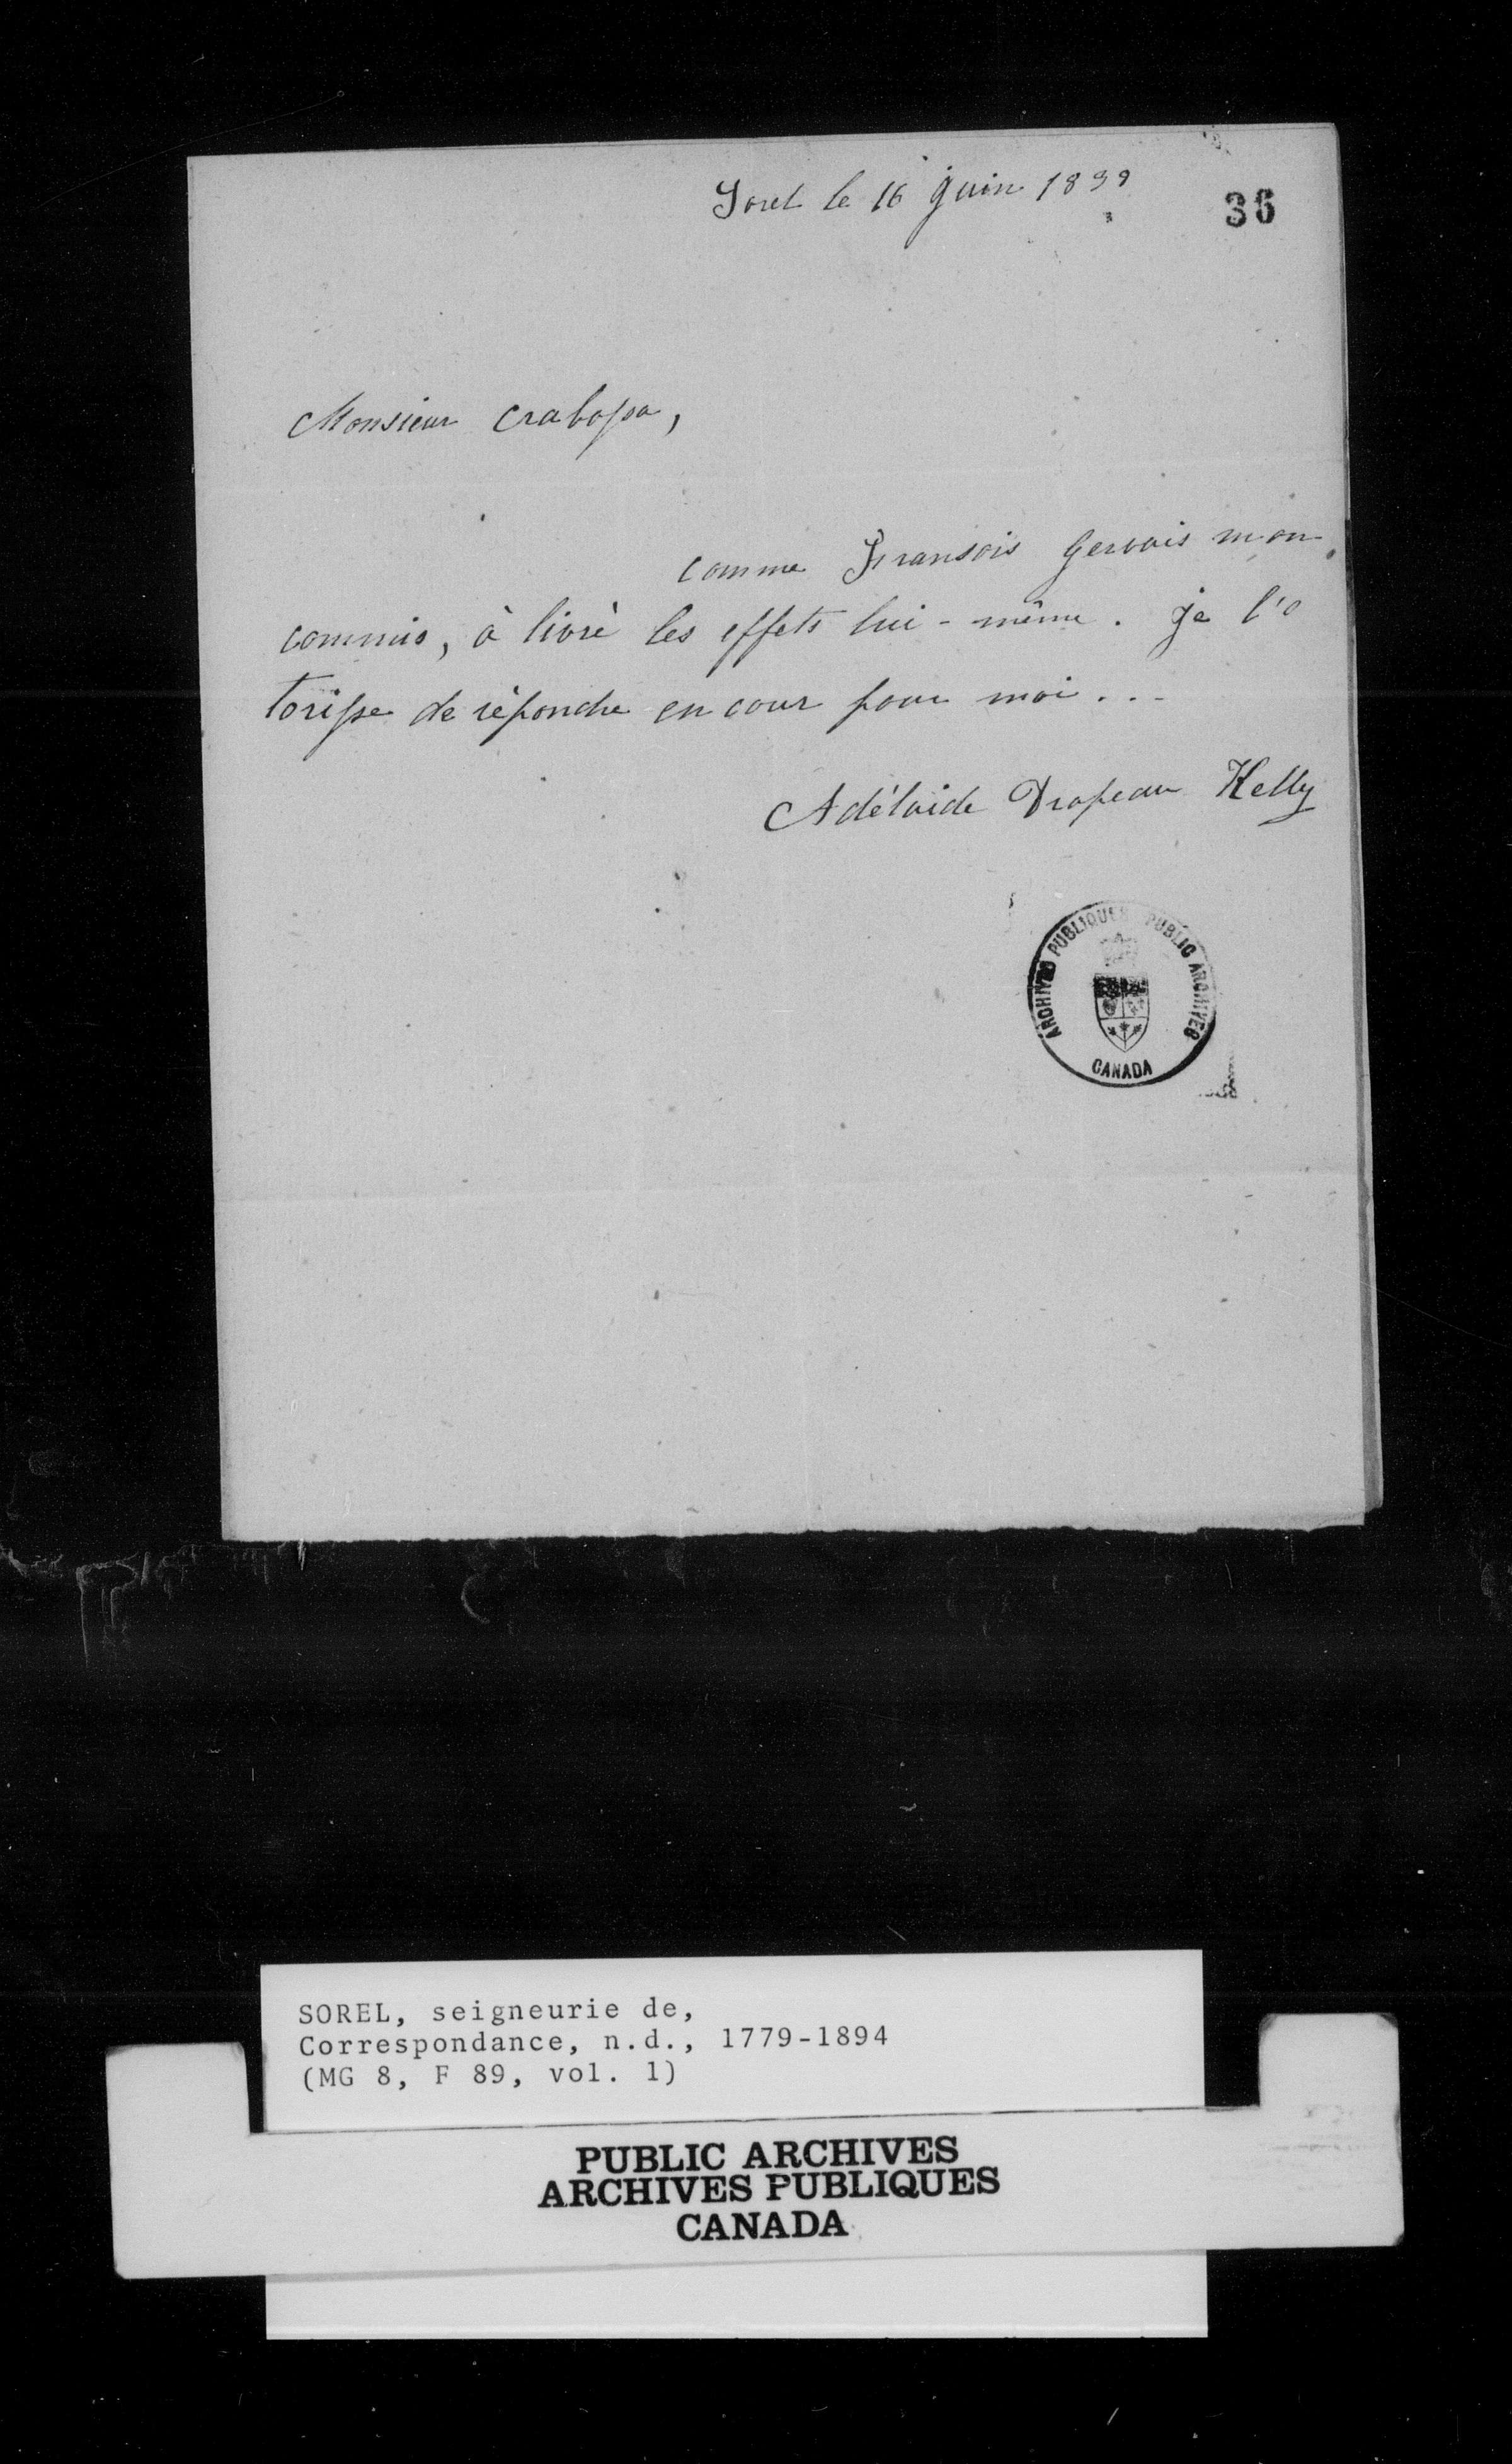 Sorel le 16 Juin 1899
36
Monsieur Crabossa,
comme Fransois Gervais mon
commis, à livré les effets lui-même. Je l'o
torisse de répondre en cour pour moi...
Adélaide Drapeau Kelly
ARCHIVES PUBLIQUES PUBLIC ARCHIVES
CANADA
SOREL, seigneurie de,
Correspondance, n.d., 1779-1894
(MG 8, F 89, vol. 1)
PUBLIC ARCHIVES
ARCHIVES PUBLIQUES
CANADA